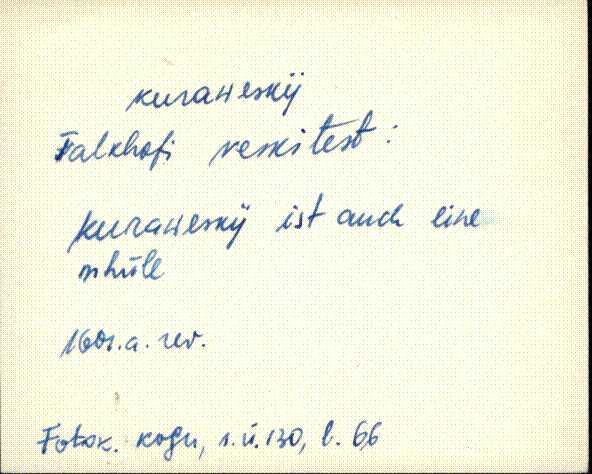 kuraweskÿ
Falkhofi veskitest:
kuraweskÿ ist auch eine
mhüle
1601.a. rev.
Fotok. kogu, s.ü. 130, l. 66